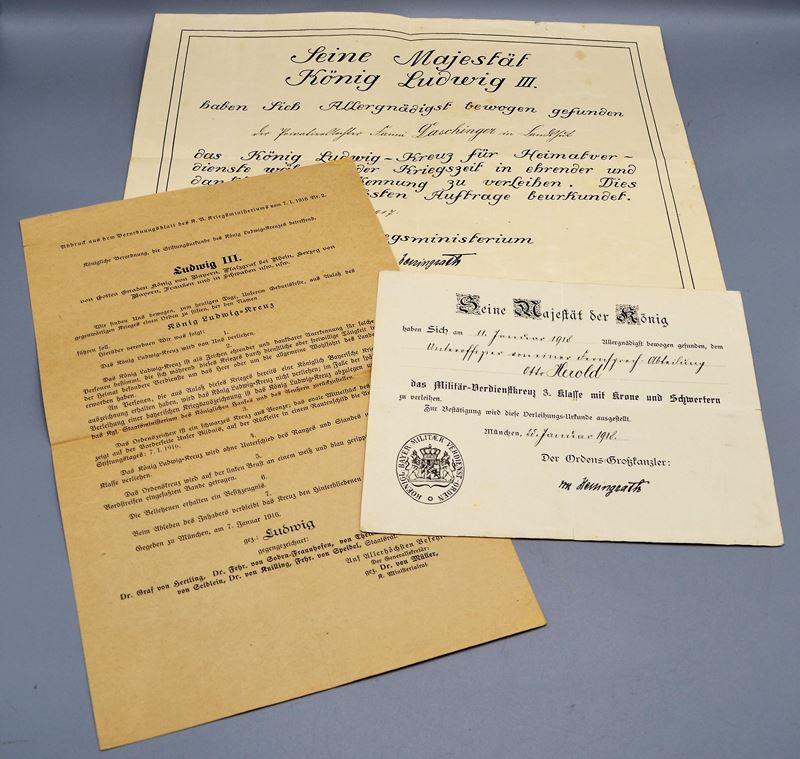 Seine Majestät
König Ludwig III.
haben Sich Allergnädigst bewogen gefunden
der Privatierstochter Fanni Daschinger in Landshut
das König Ludwig-Kreuz für Heimatver-
dienste der Kriegszeit in ehrender und
kennung zu verleihen. Dies
sten Auftrage beurkundet.
gsministerium
Abdruck aus dem Verordnungsblatt des K. B. Kriegsministeriums vom 7. 1. 1916 Nr. 2.
Königliche Verordnung, die Stiftungsurkunde des König Ludwig-Kreuzes betreffend.
Ludwig III.
von Gottes Gnaden König von Bayern, Pfalzgraf bei Rhein, Herzog von
Bayern, Franken und in Schwaben usw. usw.
Wir finden Uns bewogen, zum heutigen Tage, Unserem Geburtsfeste, aus Anlaß des
gegenwärtigen Krieges einen Orden zu stiften, der den Namen
König Ludwig-Kreuz
führen soll.
Hierüber verordnen Wir was folgt:
1.
Das König Ludwig-Kreuz wird von Uns verliehen.
2.
Das König Ludwig-Kreuz ist als Zeichen ehrender und dankbarer Anerkennung für solche
Personen bestimmt, die sich während dieses Krieges durch dienstliche oder freiwillige Tätigkeit in
der Heimat besondere Verdienste um das Heer oder um die allgemeine Wohlfahrt des Landes
erworben haben.
An Personen, die aus Anlaß dieses Krieges bereits eine Königlich Bayerische Kriegs
auszeichnung erhalten haben, wird das König Ludwig-Kreuz nicht verliehen; im Falle der spä
Verleihung einer bayerischen Kriegsauszeichnung ist das König Ludwig-Kreuz abzulegen un
das Kgl. Staatsministerium des Königlichen Hauses und des Äußern zurückzustellen.
3.
Das Ordenszeichen ist ein schwarzes Kreuz aus Bronze; das ovale Mittelstück des
zeigt auf der Vorderseite Unser Bildnis, auf der Rückseite in einem Rautenschild die In
Stiftungstages: 7. I. 1916.
4.
Das König Ludwig-Kreuz wird ohne Unterschied des Ranges und Standes n
Klasse verliehen.
5.
Das Ordenskreuz wird auf der linken Brust an einem weiß und blau geripp
Bordstreifen eingefaßten Bande getragen.
6.
Die Beliehenen erhalten ein Besitzzeugnis.
7.
Beim Ableben des Inhabers verbleibt das Kreuz den Hinterbliebenen
Gegeben zu München, am 7. Januar 1916.
gez.: Ludwig
gegengezeichnet:
Dr. Graf von Hertling, Dr. Frhr. von Soden-Fraunhofen, von Thel
von Seidlein, Dr. von Knilling, Frhr. von Speidel, Staatsrat
Auf Allerhöchsten Befehl
Der Generalsekretär:
gez. Dr. von Müller,
K. Ministerialrat
Seine Majestät der König
haben Sich am 11. Januar 1918 Allergnädigst bewogen gefunden, dem
Unteroffizier von einer Fernsprech Abteilung
Otto Herold
das Militär-Verdienstkreuz 3. Klasse mit Krone und Schwertern
zu verleihen.
Zur Bestätigung wird diese Verleihungs-Urkunde ausgestellt.
München, 28. Januar 1918.
Der Ordens-Großkanzler:
KOENIGL. BAYER. MILITÆR VERDIENST-ORDEN